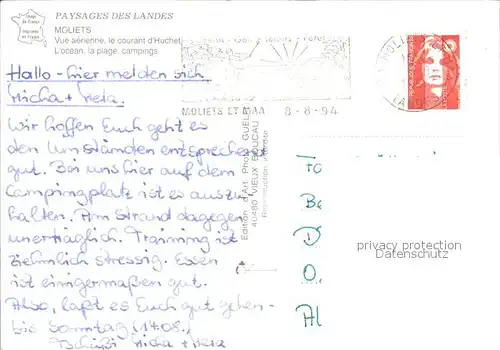 Image de France
Imprimé en France
PAYSAGES DES LANDES
MOLIETS
Vue aérienne, le courant d'Huchet
L'océan, la plage, campings
MOLIETS ET MAA 8-8-94
RÉPUBLIQUE FRANÇAISE
Hallo - hier melden sich
Micha + Meia.
Wir hoffen Euch geht es
den Umständen entsprechend
gut. Bei uns hier auf dem
Campingplatz ist es auszu-
halten. Am Strand dagegen
unerträglich. Training ist
ziehmlich stressig. Essen
ist einigermaßen gut.
Also, laßt es Euch gut gehen-
bis Sonntag (14.08.)
Tschüßi Micha + Meia
Edition d'Art Photos GUEL
40480 VIEUX BOUCAU
Reproduction interdite
Fo
Be
D
O.
Al
privacy protection
Datenschutz